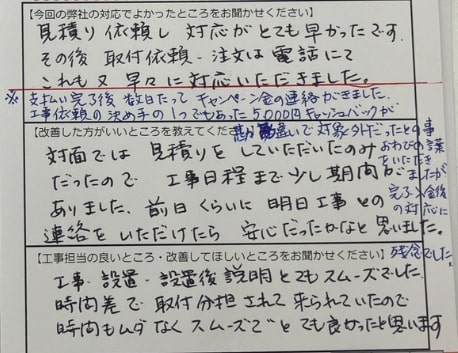 【今回の弊社の対応でよかったところをお聞かせください】
見積り依頼し 対応がとても早かったです。
その後 取付依頼・注文は電話にて
これも又 早々に対応いただきました。
※ 支払い完了後 数日たって キャンペーン金の連絡がきました。
工事依頼の決め手の1つでもあった5000円キャッシュバックが
【改善した方がいいところを教えてくだ
違いで対象外だったとの事
おわびの言葉
をいただき
ましたが
完了入金後
の対応に
残念でした。
対面では 見積りをしていただいたのみ
だったので 工事日程まで少し期間が
ありました。前日くらいに 明日工事との
連絡をいただけたら 安心だったかなと思いました。
【工事担当の良いところ・改善してほしいところをお聞かせください】
工事・設置・設置後説明とてもスムーズでした。
時間差で 取付分担されて来られていたので
時間もムダなくスムーズでとても良かったと思います